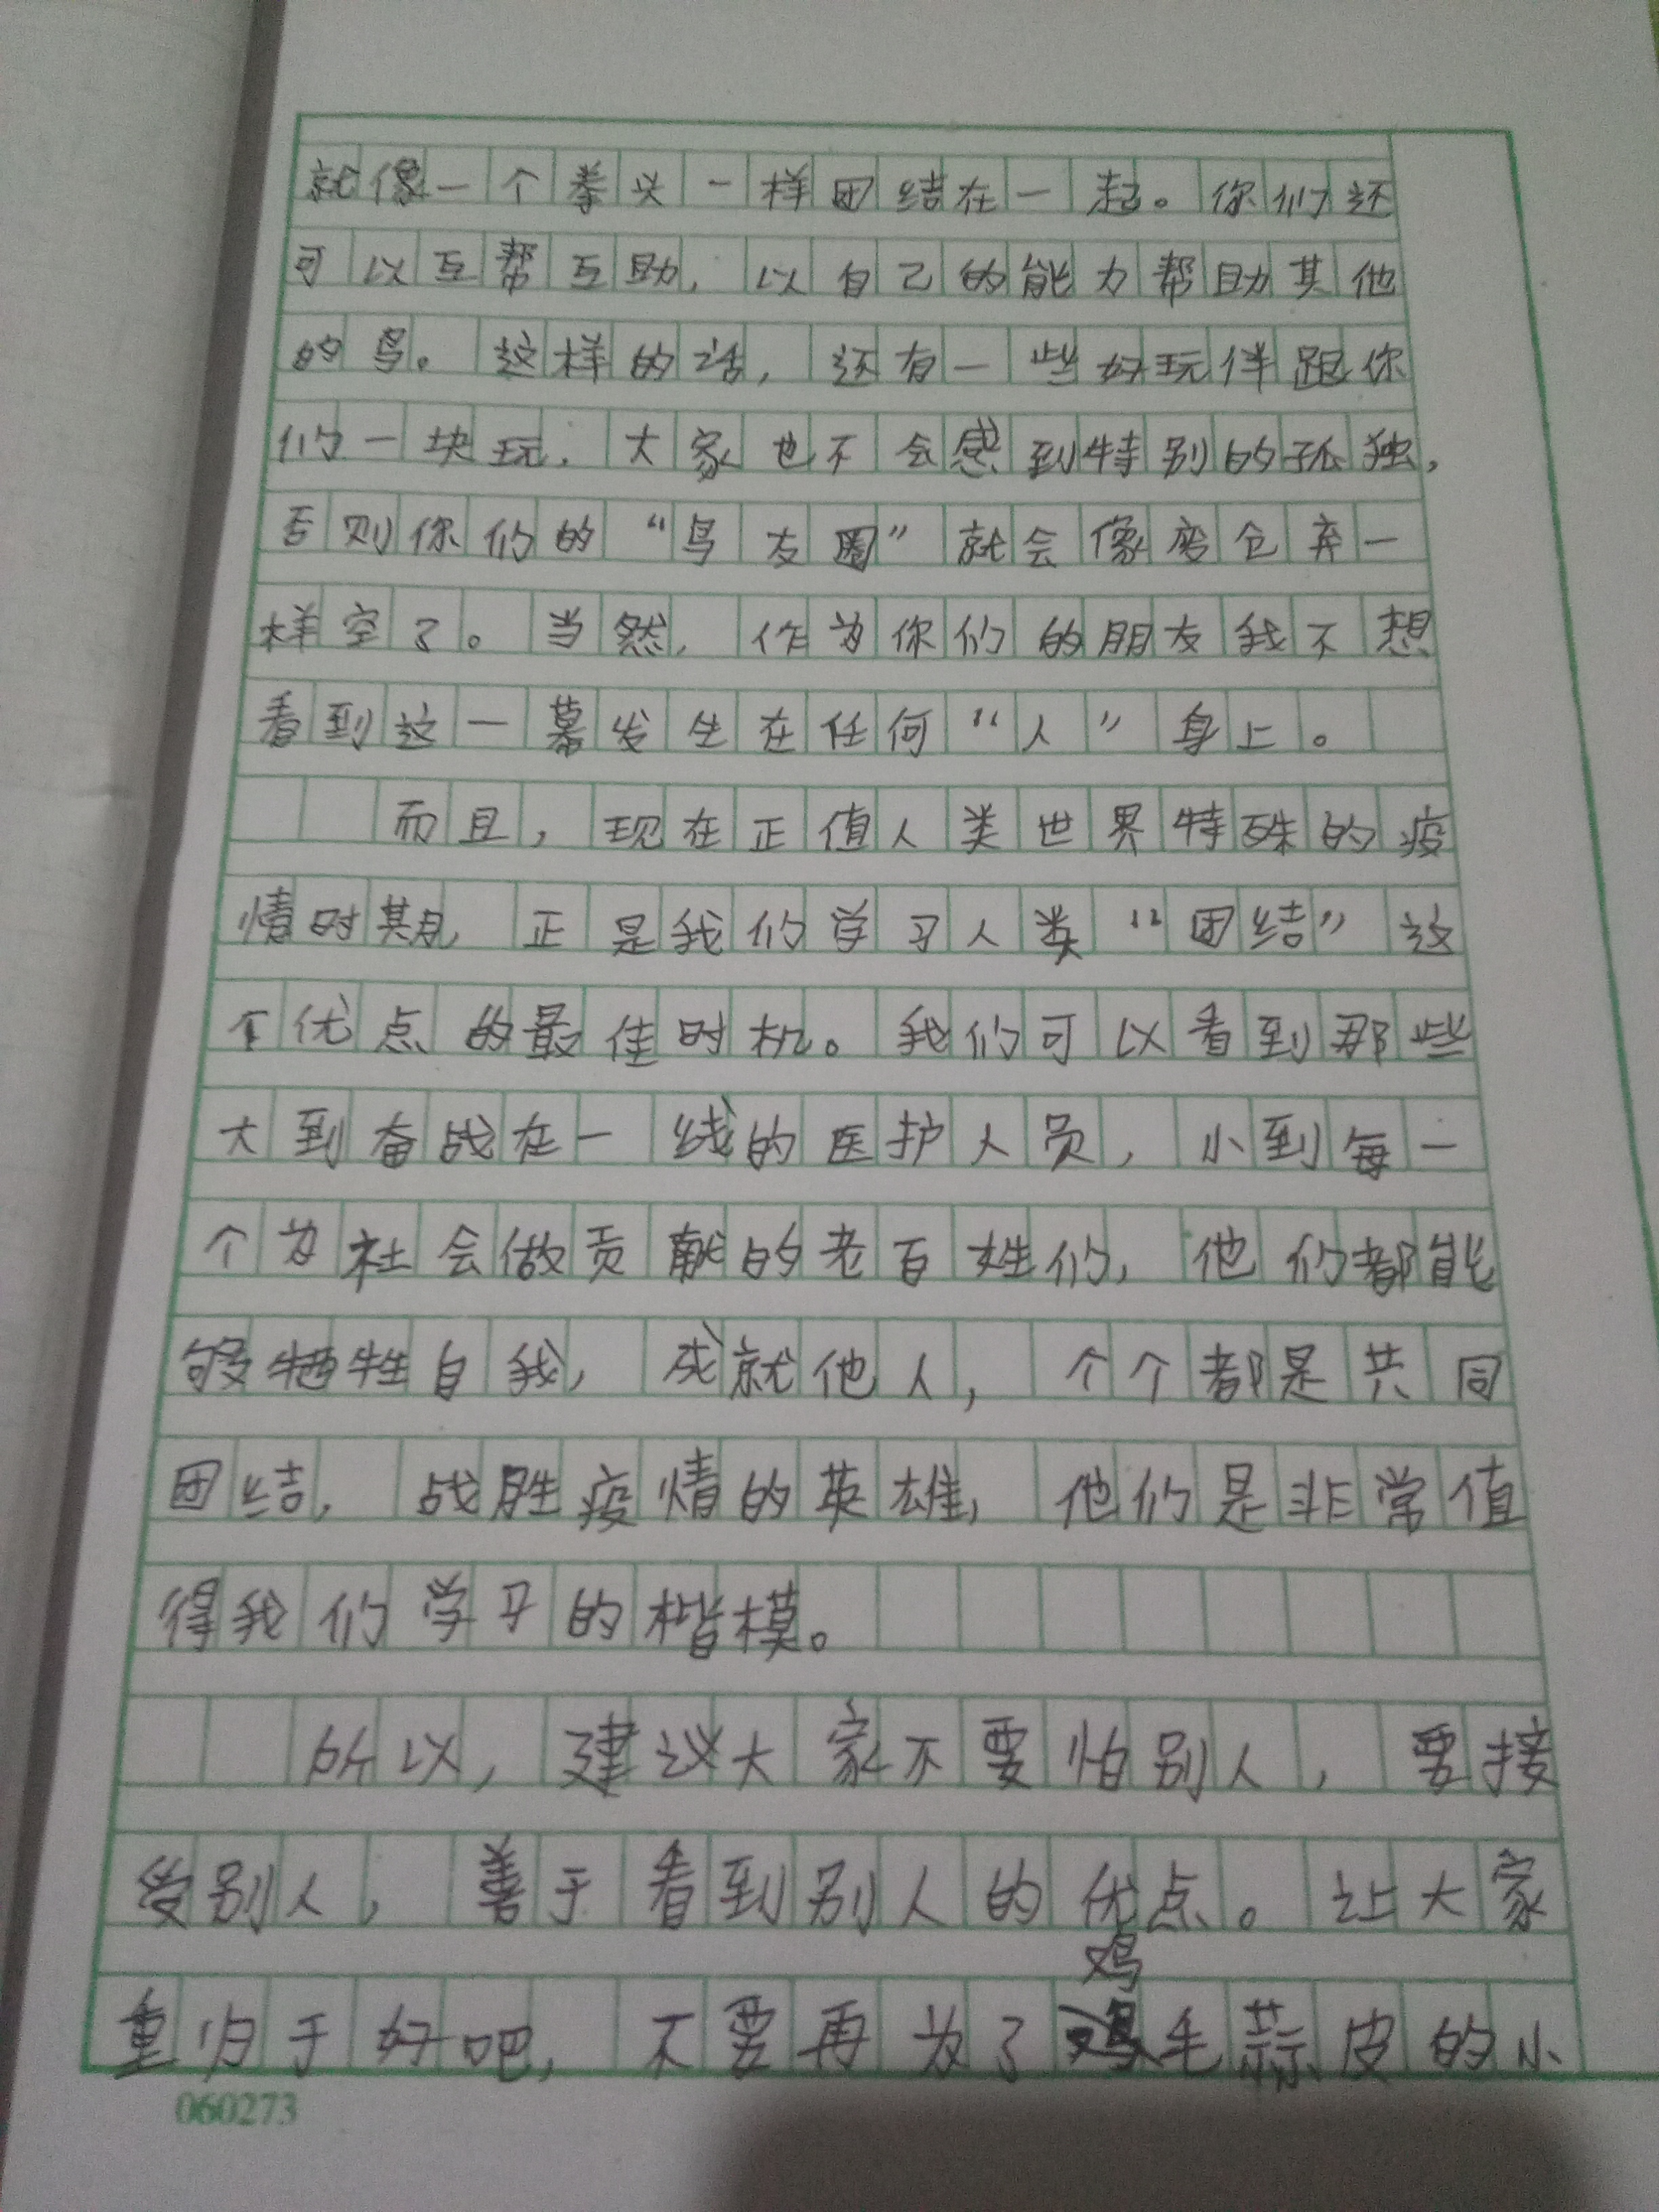 就像一个拳头一样团结在一起。你们还
可以互帮互助，以自己的能力帮助其他
的鸟。这样的话，还有一些好玩伴跟你
们一块玩，大家也不会感到特别的孤独，
否则你们的“鸟友圈”就会像废仓弃一
样空了。当然，作为你们的朋友我不想
看到这一幕发生在任何“人”身上。
而且，现在正值人类世界特殊的疫
情时期，正是我们学习人类“团结”这
个优点的最佳时机。我们可以看到那些
大到奋战在一线的医护人员，小到每一
个为社会做贡献的老百姓们，他们都能
够牺牲自我，成就他人，个个都是共同
团结，战胜疫情的英雄，他们是非常值
得我们学习的楷模。
所以，建议大家不要怕别人，要接
受别人，善于看到别人的优点。让大家
重归于好吧，不要再为了鸡毛蒜皮的小
060273